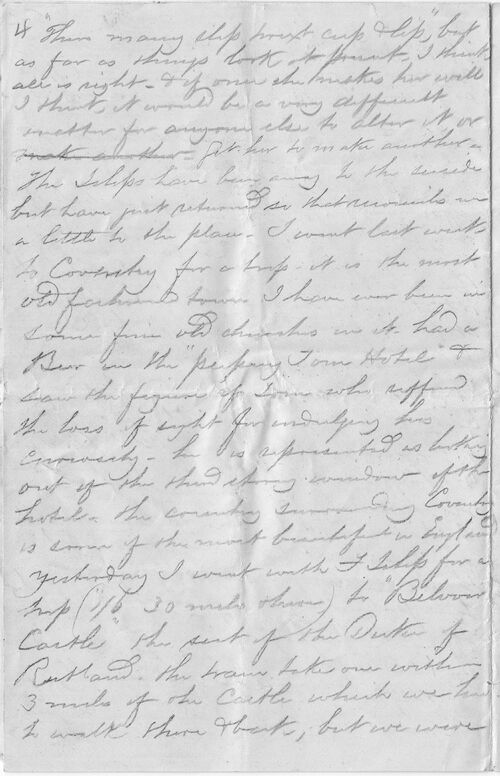 4 "Theres many slip twixt cup & lip", but
as far as things look at present, I think
all is right - & if once she makes her will
I think it would be a very difficult
matter for anyone else to alter it or
make another - get her to make another -
The Islips have been away to the seaside
but have just returned so that reconciles me
a little to the place - I went last week
to Coventry for a trip - it is the most
old fashioned town I have ever been in
some fine old churches in it. had a
Beer in the "peeping Tom Hotel" &
saw the figure of Tom who suffered
the loss of sight for indulging his
curiosity - he is represented as looking
out of the third storey window of the
hotel - the country surrounding Coventry
is some of the most beautiful in England
yesterday I went with F Islip for a
trip (1/6 30 miles there) to "Belvoir
Castle" the seat of the Duke of
Rutland. the train take one within
3 miles of the Castle which we had
to walk there & back, but we were